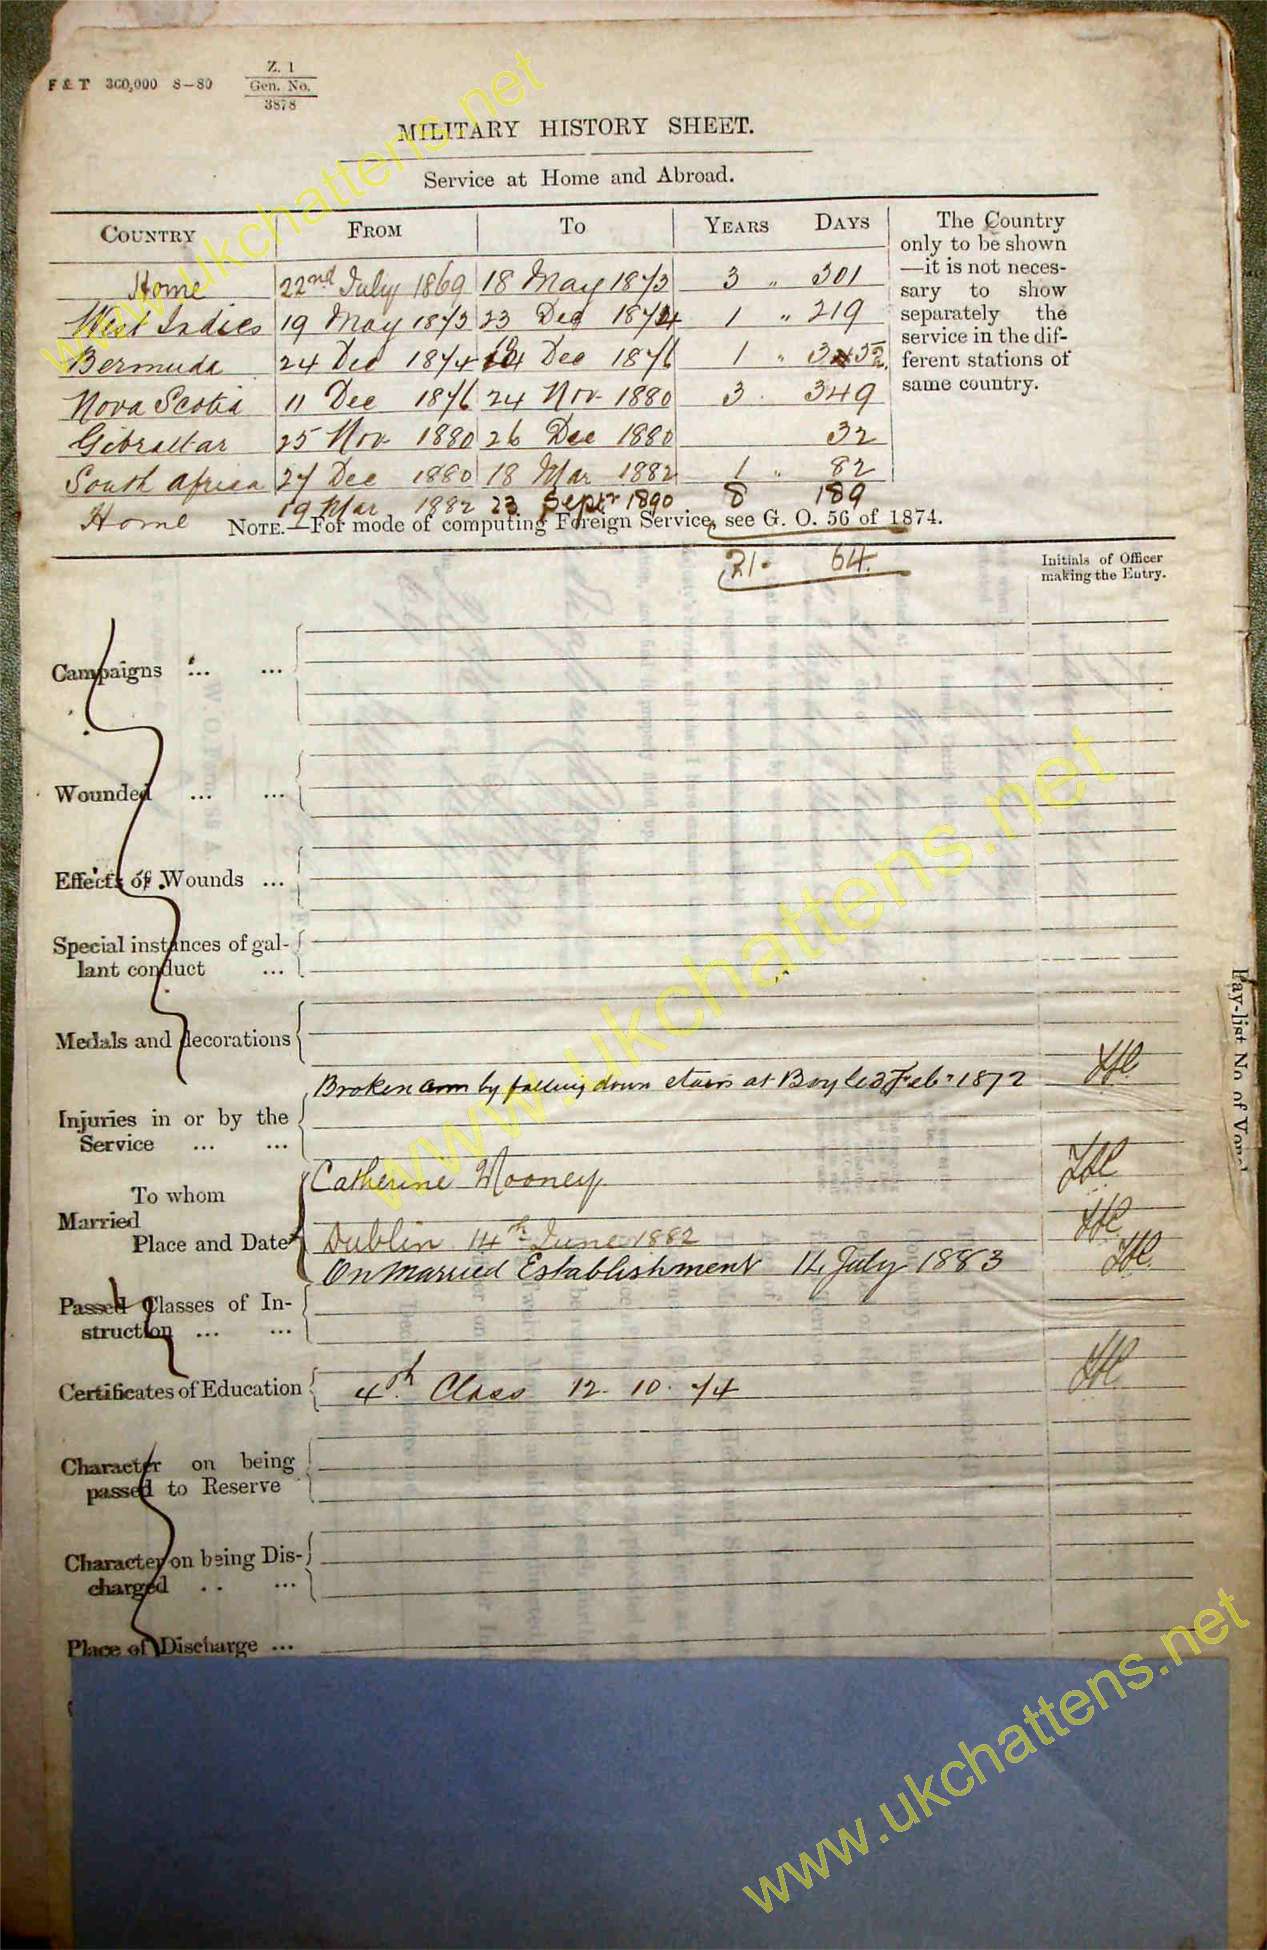 F & T 300,000 8—80
Z. 1
Gen. No.
3878
MILITARY HISTORY SHEET.
Service at Home and Abroad.
COUNTRY FROM TO YEARS DAYS
The Country
only to be shown
—it is not neces-
sary to show
separately the
service in the dif-
ferent stations of
same country.
Home 22nd July 1869 18 May 1873 3 " 301
West Indies 19 May 1873 23 Dec 1874 1 " 219
Bermuda 24 Dec 1874 10 Dec 1876 1 " 352
Nova Scotia 11 Dec 1876 24 Nov 1880 3 349
Gibraltar 25 Nov 1880 26 Dec 1880 32
South Africa 27 Dec 1880 18 Mar 1882 1 " 82
Home 19 Mar 1882 23 Septr 1890 8 189
NOTE.—For mode of computing Foreign Service, see G. O. 56 of 1874.
21. 64.
Initials of Officer
making the Entry.
Campaigns ... ...
Wounded ... ...
Effects of Wounds ...
Special instances of gal-
lant conduct ...
Medals and decorations
Broken arm by falling down stairs at Boyle 3 Feb. 1872
Injuries in or by the
Service ... ...
Catherine Mooney
To whom
Married
Place and Date
Dublin 14th June 1882
On Married Establishment 14 July 1883
Passed Classes of In-
struction ... ...
Certificates of Education 4th Class 12. 10. 74
Character on being
passed to Reserve
Character on being Dis-
charged .. ...
Place of Discharge ...
Pay-list No of
www.ukchattens.net
www.ukchattens.net
www.ukchattens.net